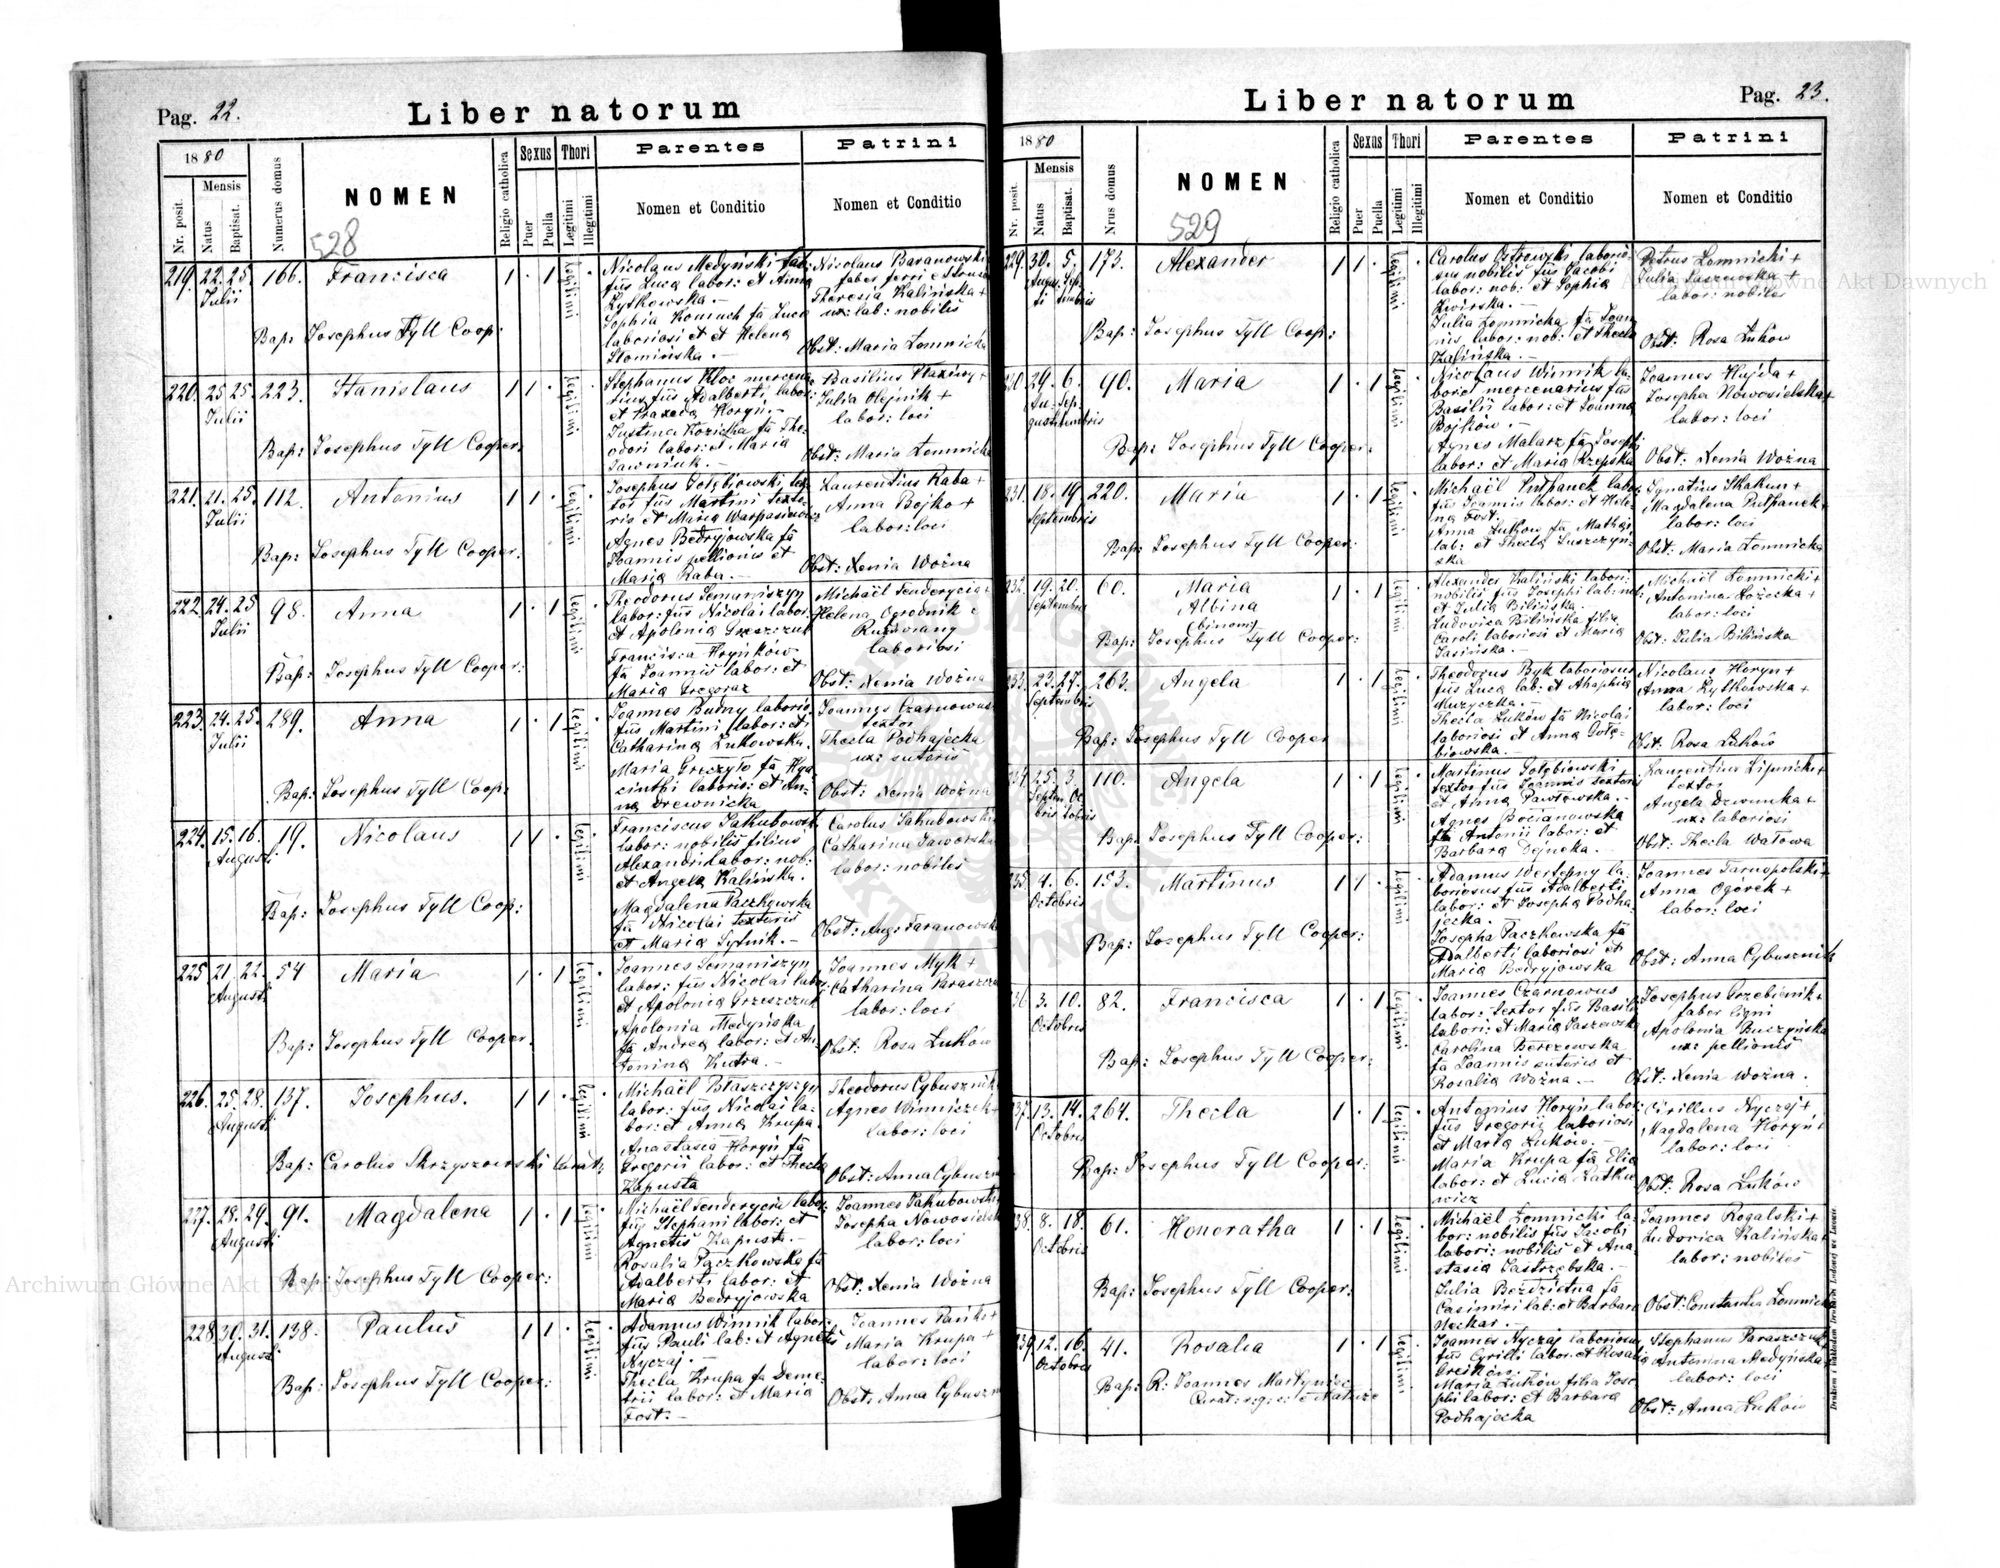 Pag. 22.
Liber natorum
1880
Mensis
Nr. posit.
Natus
Baptisat.
Numerus domus
NOMEN
528
Religio catholica
Sexus
Puer
Puella
Thori
Legitimi
Illegitimi
Parentes
Nomen et Conditio
Patrini
Nomen et Conditio
219. 22. 25 166. Francisca 1 . 1 Legitimi
Julii
Bap: Josephus Tyll Coop:
Nicolaus Medyński
fūs Luca labor: et Anna
Rytkowska.—
Sophia fa Luca
laboriosi et Helena
Słomińska.—
Nicolaus Baranowski
faber ferri
Theresia Kalińska +
ux: lab: nobilis
Obst: Maria Łomnicka
220. 25 25. 223. Stanislaus 1 1 . Legitimi
Julii
Bap: Josephus Tyll Cooper:
Stephanus Kloc mercena
rius fūs Adalberti labor:
et Praxeda Horyn.—
Justina Kozicka fa The-
odori labor: et Maria
Jawniuk.—
Basilius
Julia Olejnik +
labor: loci
Obst: Maria Łomnicka
221. 21. 25. 112. Antonius 1 1 . Legitimi
Julii
Bap: Josephus Tyll Cooper:
Josephus Gołębiowski tex-
tor fūs Martini texto-
ris et Maria
Agnes Bedryjowska fa
Joannis pellionis et
Maria Raba.—
Laurentius Raba +
Anna Bojko +
labor: loci
Obst: Xenia Woźna
222. 24. 25 98. Anna 1 . 1 Legitimi
Julii
Bap: Josephus Tyll Cooper:
Theodorus Semaniszyn
labor: fūs Nicolai labor:
et Apolonia Grzeszczuk
Francisca Hryńków
fa Joannis labor: et
Maria Gregoraz
Michaël Senderycia +
Helena Ogrodnik
laboriosi
Obst: Xenia Woźna
223. 24. 25. 289. Anna 1 . 1 Legitimi
Julii
Bap: Josephus Tyll Coop:
Joannes Budny laborio
fūs Martini labor: et
Catharina Lukowska.
Maria Greczyło fa Hya-
cinthi laboris: et An-
na Drewnicka
Joannes Czarnowus
textor
Thecla Podhajecka
ux: sutoris
Obst: Xenia Woźna
224. 15. 16. 19. Nicolaus 1 1 . Legitimi
Augusti
Bap: Josephus Tyll Coop:
Franciscus Jakubowski
labor: nobilis filius
Alexandri labor: nob:
et Angela Kalińska.
Magdalena Paczkowska
fa Nicolai textoris
et Maria Sytnik.—
Carolus Jakubowski
Catharina Jaworska
labor: nobiles
Obst: Ang: Taranowska
225 21. 22. 54 Maria 1 . 1 Legitimi
Augusti
Bap: Josephus Tyll Cooper.
Joannes Semaniszyn
labor: fūs Nicolai labor:
et Apolonia Grzeszczuk
Apolonia Medyńska
fa Andrea labor: et An-
tonina Kutra.—
Joannes Myk +
Catharina Paraszczu
labor: loci
Obst: Rosa Łuków
226. 25. 28. 137. Josephus. 1 1 . Legitimi
Augusti
Bap: Carolus Skrzyszowski Curat:
Michaël Błaszczyszyn
labor: fūs Nicolai la-
bor: et Anna Krupa.
Anastasia Horyń fa
Gregorii labor: et Thecla
Kapusta
Theodorus Cybusznik
Agnes Winniczek +
labor: loci
Obst: Anna Cybuszn
227. 28. 29. 91. Magdalena 1 . 1 Legitimi
Augusti
Bap: Josephus Tyll Cooper:
Michaël Senderycia labor:
fūs Stephani labor: et
Agnetis Kapusta.—
Rosalia Paczkowska fa
Adalberti labor: et
Maria Bedryjowska
Joannes Jakubowski
Josepha Nowosielska
labor: loci
Obst: Xenia Woźna
228 30. 31. 138. Paulus 1 1 . Legitimi
Augusti
Bap: Josephus Tyll Cooper:
Adamus Winnik labor:
fūs Pauli lab: et Agnetis
Nyczaj.—
Thecla Krupa fa Deme-
trii labor: et Maria
Fost.—
Joannes Pańki +
Maria Krupa +
labor: loci
Obst: Anna Cybuszn
Pag. 23.
Liber natorum
1880
Mensis
Nr. posit.
Natus
Baptisat.
Nrus domus
NOMEN
529
Religio catholica
Sexus
Puer
Puella
Thori
Legitimi
Illegitimi
Parentes
Nomen et Conditio
Patrini
Nomen et Conditio
229. 30. 5. 173. Alexander 1 1 . Legitimi
Augu- Sep-
sti tembris
Bap: Josephus Tyll Coop:
Carolus Ostrowski laborio-
sus nobilis fūs Jacobi
labor: nob: et Sophia
Zwirska.—
Julia Łomnicka fa Joan
nis labor: nob: et Thecla
Kalińska.—
Petrus Łomnicki +
Julia Paszewska +
labor: nobiles
Obst: Rosa Łuków
230 29. 6. 90. Maria 1 . 1 Legitimi
Au- Sep-
gusti tembris
Bap: Josephus Tyll Cooper:
Nicolaus Winnik la-
bor: mercenarius fūs
Basilii labor: et Joanna
Bojków.—
Agnes Malarz fa Josephi
labor: et Maria Rzepska
Joannes Hujda +
Josepha Nowosielska +
labor: loci
Obst: Xenia Woźna
231. 18. 19 220. Maria 1 . 1 Legitimi
Septembris
Bap: Josephus Tyll Cooper:
Michaël Putpanek labor
fūs Joannis labor: et Hele
na Fost.
Anna Łuków fa Mathia
lab: et Thecla Suszczyn-
ska
Ignatius Skakun +
Magdalena Putpanek +
labor: loci
Obst: Maria Łomnicka
232. 19. 20. 60. Maria 1 . 1 Legitimi
Septembris Albina
(binom)
Bap: Josephus Tyll Cooper:
Alexander Kaliński labor:
nobilis fūs Josephi lab: no
et Julia Bilińska.
Ludovica Bilińska filia
Caroli laboriosi et Maria
Jasińska.—
Michaël Łomnicki +
Antonina Łozecka +
labor: loci
Obst: Julia Bilińska
233. 22. 27. 263. Angela 1 . 1 Legitimi
Septembris
Bap: Josephus Tyll Cooper
Theodorus Byk laboriosus
fūs Luca lab: et Ahaphia
Muzyczka.—
Thecla Łuków fa Nicolai
laboriosi et Anna Gołę-
biowska.—
Nicolaus Horyn +
Anna Rytkowska +
labor: loci
Obst: Rosa Łuków
234 25. 3. 110. Angela 1 . 1 Legitimi
Septem Oc-
bris tobris
Bap: Josephus Tyll Cooper:
Martinus Gołębiowski
textor fūs Joannis textoris
et Anna Pawłowska.—
Agnes Bocianowska
fa Antonii labor: et
Barbara Dejneka.—
Laurentius Lipnicki +
textor
Angela Dzwinka +
ux: laboriosi
Obst: Thecla Watowa
235 4. 6. 153. Martinus 1 1 . Legitimi
Octobris
Bap: Josephus Tyll Cooper:
Adamus Wertepny la-
boriosus fūs Adalberti
labor: et Josepha Podha-
jecka.—
Josepha Paczkowska fa
Adalberti laboriosi et
Maria Bedryjowska
Joannes Tarnopolski +
Anna Ogórek +
labor: loci
Obst: Anna Cybusznik
236 3. 10. 82. Francisca 1 . 1 Legitimi
Octobris
Bap: Josephus Tyll Cooper:
Joannes Czarnowus
labor: textor fūs Basili
labori: et Maria Paszewska
Carolina Berezowska
fa Joannis sutoris et
Rosalia Woźna.—
Josephus Grzebienik +
faber ligni
Apolonia Buczyńska
ux: pellionis
Obst: Xenia Woźna.
237. 13. 14. 264. Thecla 1 . 1 Legitimi
Octobris
Bap: Josephus Tyll Cooper:
Antonius Horyń labor:
fūs Gregorii laboriosi
et Marta Łuków.—
Maria Krupa fa Elia
labor: et Lucia Łatku
wicz
Cirillus Nyczaj +
Magdalena Horyń
labor: loci
Obst: Rosa Łuków
238. 8. 18. 61. Honoratha 1 . 1 Legitimi
Octobris
Bap: Josephus Tyll Cooper:
Michaël Łomnicki la-
bor: nobilis fūs Jacobi
labori: nobilis et Ana-
stasia Jastrzębska.—
Julia Bezdzietna fa
Casimiri lab: et Barbara
Neckar.—
Joannes Rogalski +
Ludovica Kalińska +
labor: nobiles
Obst: Constantia Łomnicka
239. 12. 16. 41. Rosalia 1 . 1 Legitimi
Octobris
Bap: R: Joannes Martyniec
Curat: r: g: c:
Joannes Nyczaj laboriosus
fūs Cyrilli labor: et Rosalia
Greśków.
Maria Łuków filia Jose-
phi labor: et Barbara
Podhajecka
Stephanus Paraszczuk
Antonina Medyńska +
labor: loci
Obst: Anna Łuków
Drukiem i nakładem Drukarni Ludowej we Lwowie.
Archiwum Główne Akt Dawnych
Archiwum Główne Akt Dawnych
ARCHIWUM GŁÓWNE AKT DAWNYCH